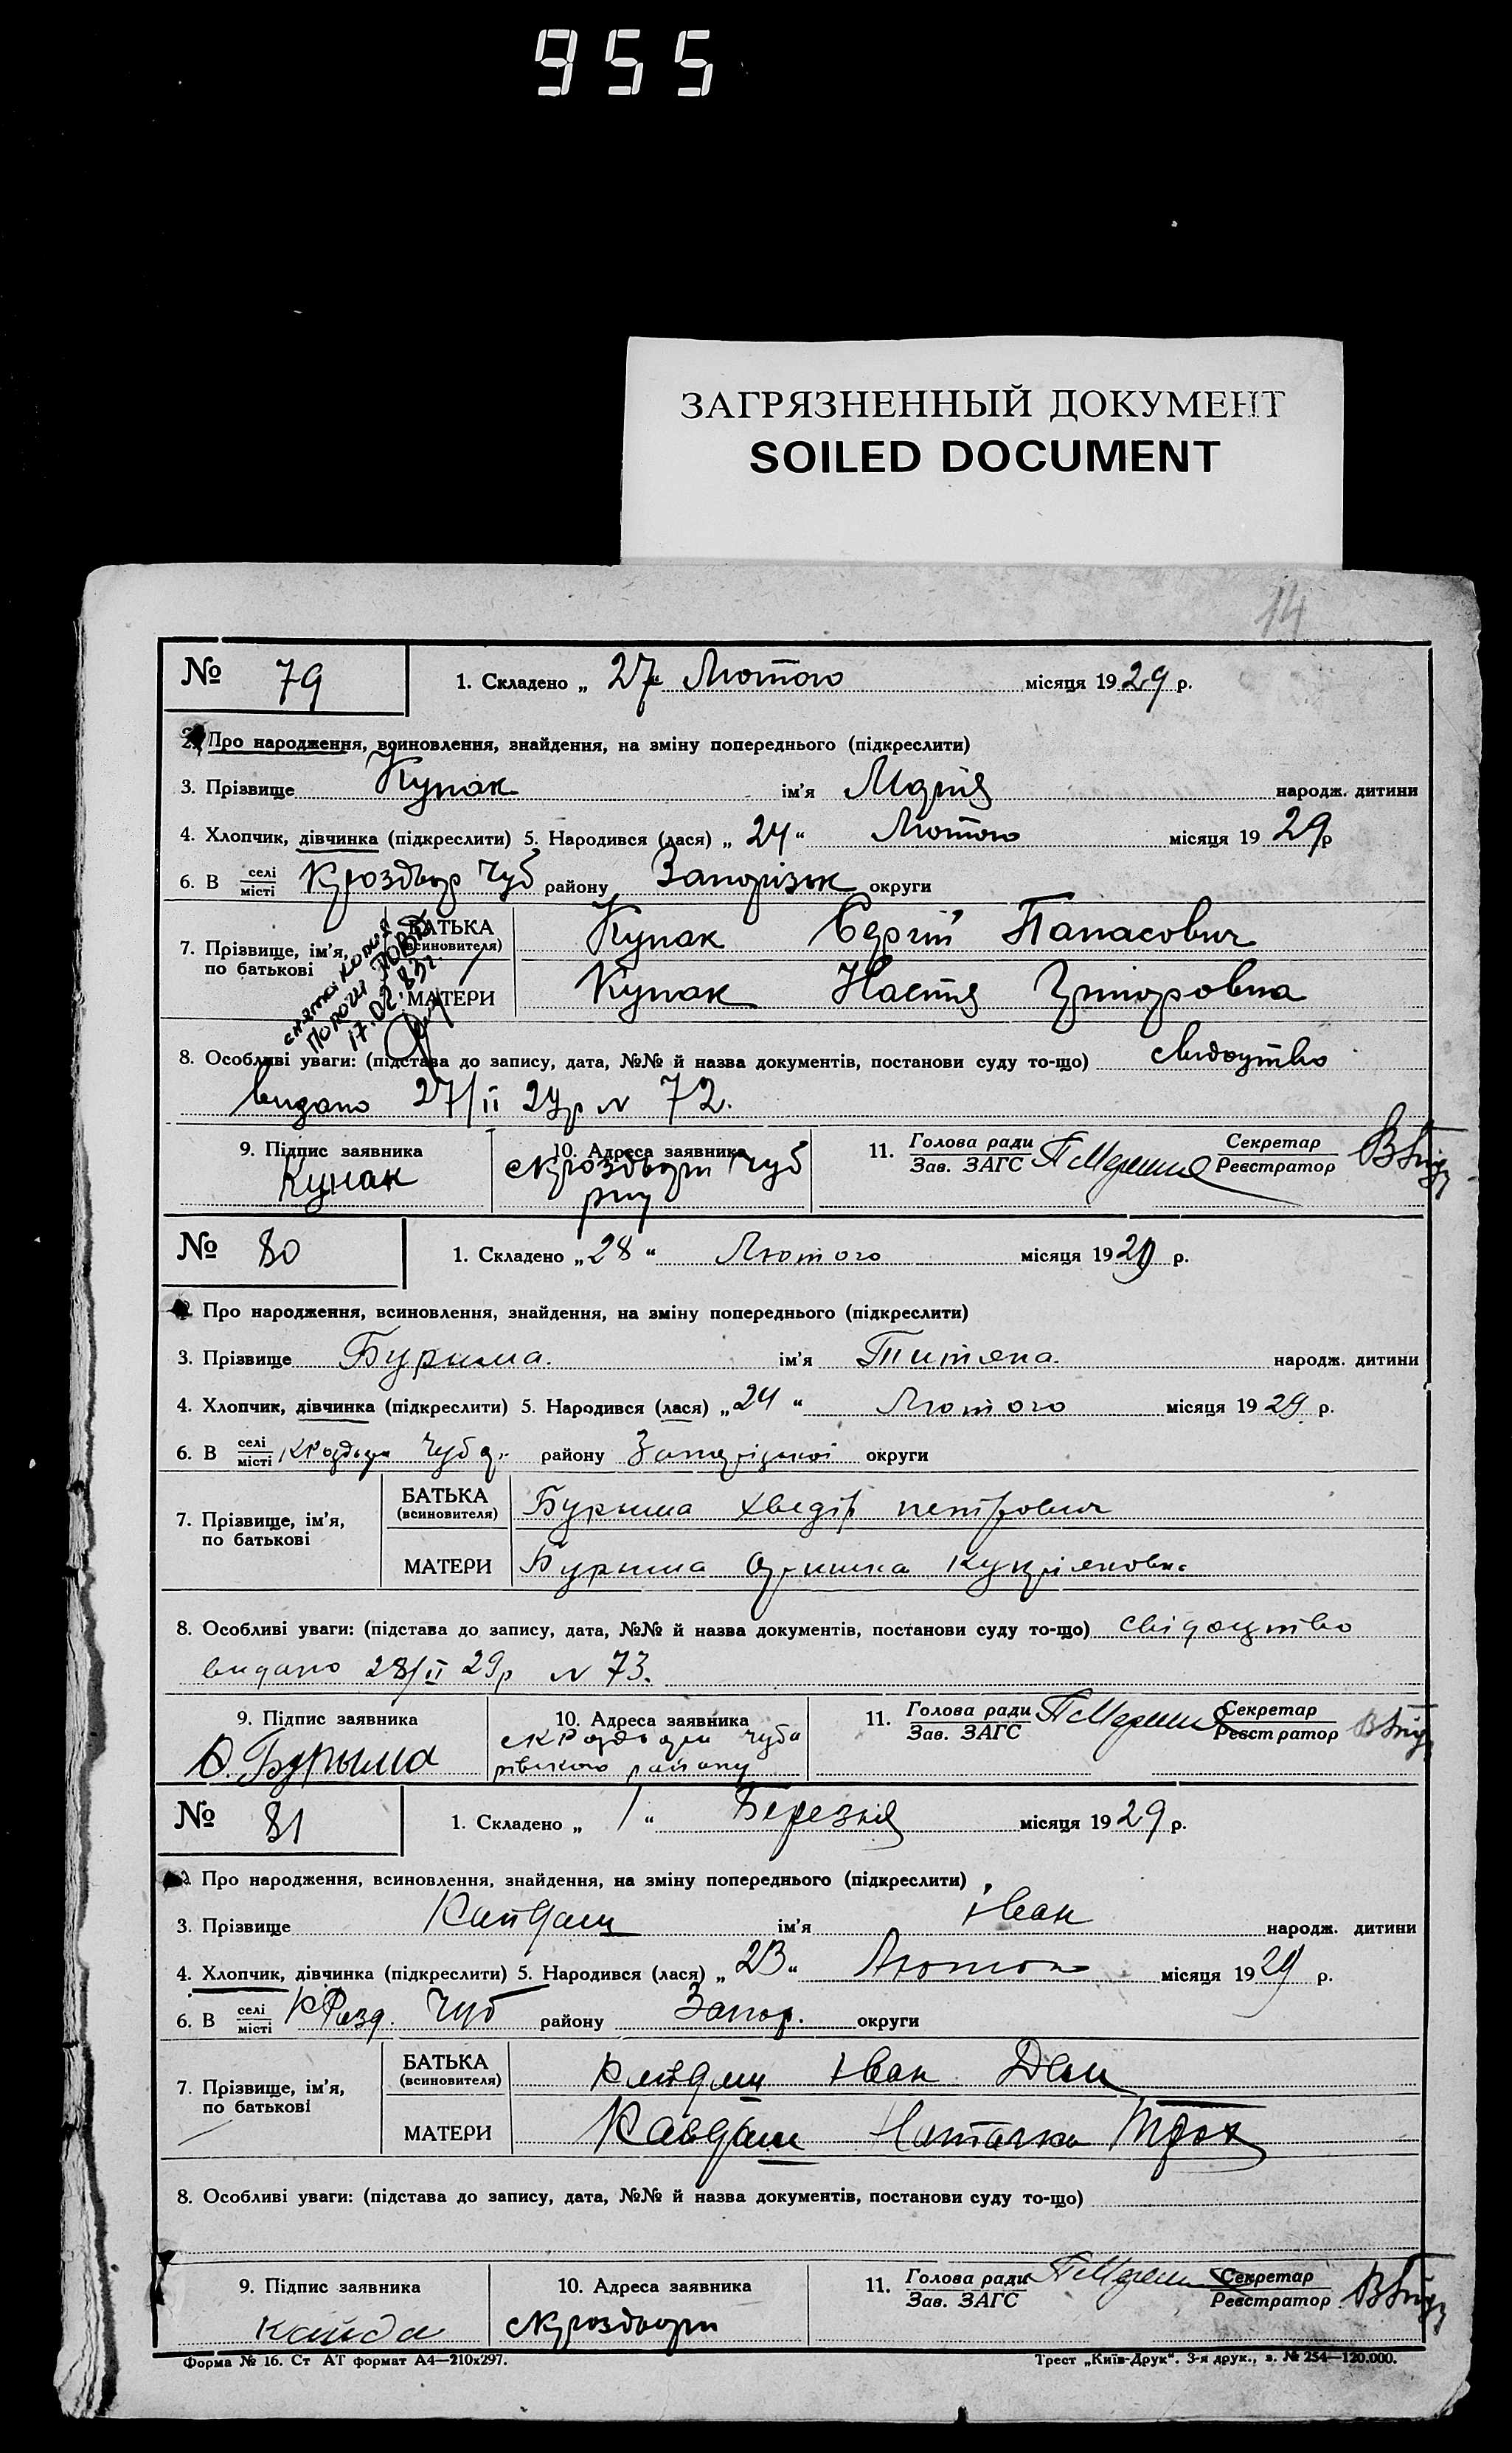 955
ЗАГРЯЗНЕННЫЙ ДОКУМЕНТ
SOILED DOCUMENT
14
№ 79 1. Складено „ 27 “ Лютого місяця 1929 р.
2. Про народження, всиновлення, знайдення, на зміну попереднього (підкреслити)
3. Прізвище Купак ім’я Марія народж. дитини
4. Хлопчик, дівчинка (підкреслити) 5. Народився (лася) „ 24 “ Лютого місяця 1929 р
6. В селі місті Чуб району Запорізьк округи
7. Прізвище, ім’я, по батькові
БАТЬКА (всиновителя) Купак Сергій Панасович
МАТЕРИ Купак Настя
17.02.83г.
8. Особливі уваги: (підстава до запису, дата, №№ й назва документів, постанови суду то-що) свидоцтво
видано 27/II 29р N 72.
9. Підпис заявника 10. Адреса заявника 11. Голова ради Зав. ЗАГС Секретар Реєстратор
Купак
№ 80 1. Складено „ 28 “ Лютого місяця 1929 р.
2. Про народження, всиновлення, знайдення, на зміну попереднього (підкреслити)
3. Прізвище Бурима. ім’я Титяна. народж. дитини
4. Хлопчик, дівчинка (підкреслити) 5. Народився (лася) „ 24 “ Лютого місяця 1929 р.
6. В селі місті району Запорізької округи
7. Прізвище, ім’я, по батькові
БАТЬКА (всиновителя) Бурима Хведір Петрович
МАТЕРИ Бурима
8. Особливі уваги: (підстава до запису, дата, №№ й назва документів, постанови суду то-що) свідоцтво
видано 28/II 29р N 73.
9. Підпис заявника 10. Адреса заявника 11. Голова ради Зав. ЗАГС Секретар Реєстратор
Бурыма
району
№ 81 1. Складено „ 1 “ Березня місяця 1929 р.
2. Про народження, всиновлення, знайдення, на зміну попереднього (підкреслити)
3. Прізвище Кайдаш ім’я Іван народж. дитини
4. Хлопчик, дівчинка (підкреслити) 5. Народився (лася) „ 23 “ місяця 1929 р.
6. В селі місті Чуб району Запор. округи
7. Прізвище, ім’я, по батькові
БАТЬКА (всиновителя) Кайдаш Іван
МАТЕРИ Кайдаш
8. Особливі уваги: (підстава до запису, дата, №№ й назва документів, постанови суду то-що)
9. Підпис заявника 10. Адреса заявника 11. Голова ради Зав. ЗАГС Секретар Реєстратор
Кайда
Форма № 16. Ст АТ формат А4—210х297. Трест „Київ-Друк“. 3-я друк., з. № 254—120.000.